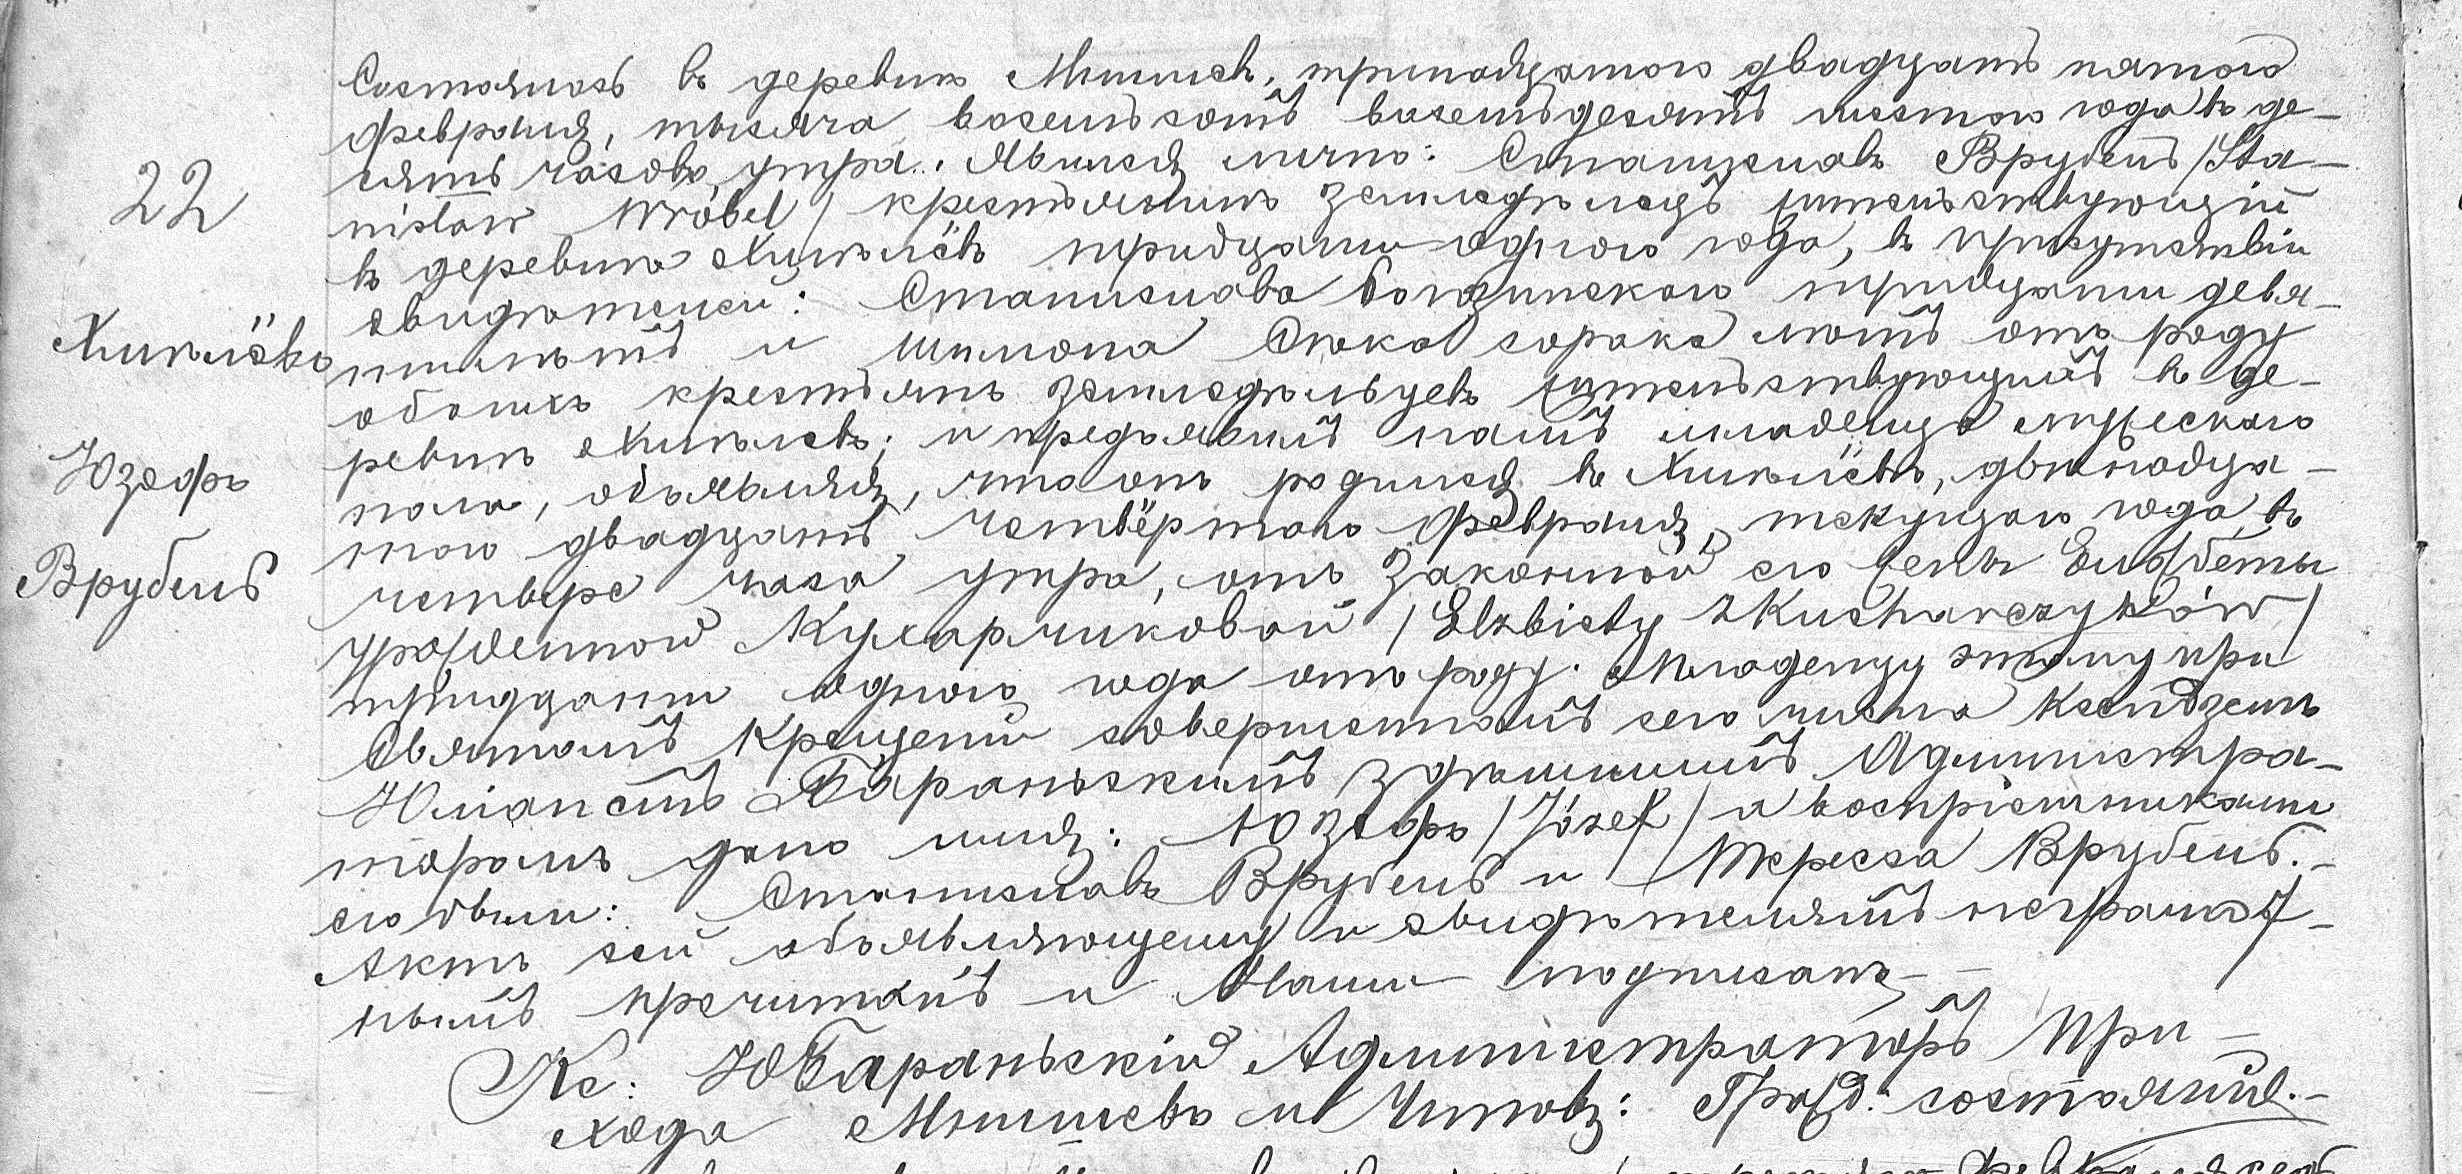 22
Хмѣлёвъ
Юзефъ
Врубель
Состоялось въ деревнѣ тринадцатого двадцать пятого
февраля, тысяча восемьсотъ восемьдесятъ шестого года въ де-
сять часовъ утра. Явился лично: Станиславъ Врубель /Sta-
nisław Wróbel/ крестьянинъ земледѣлецъ жительствующій
въ деревнѣ Хмѣлёвъ тридцати одного года, въ присутствіи
свидѣтелей: Станислава тридцати девя-
ти лѣтъ и Шимона сорока лѣтъ отъ роду
обоихъ крестьянъ земледѣльцевъ жительствующихъ въ де-
ревнѣ Хмѣлевъ; и предъявилъ намъ младенца мужескаго
пола, объявляя, что онъ родился въ Хмѣлёвъ, двѣнадца-
того двадцать четвёртого февраля, текущаго года въ
четыре часа утра, отъ законной его жены Елжбеты
урожденной Кухарчиковой /Elżbiety z Kucharczyków/
тридцати одного года отъ роду. Младенцу этому при
Святомъ Крещеніи совершенномъ сего числа Ксендземъ
Юліаномъ Бараньскимъ здѣшнимъ Администра-
торомъ дано имя: Юзефъ /Józef/ а воспріемниками
его были: Станиславъ Врубель и Тереса Врубель.-
Актъ сей объявляющему и свидѣтелямъ неграмот-
нымъ прочитанъ и Нами подписанъ - -
Кс: Ю Бараньскій Администраторъ При-
хода и Чинов: Гражд: состоянія.-